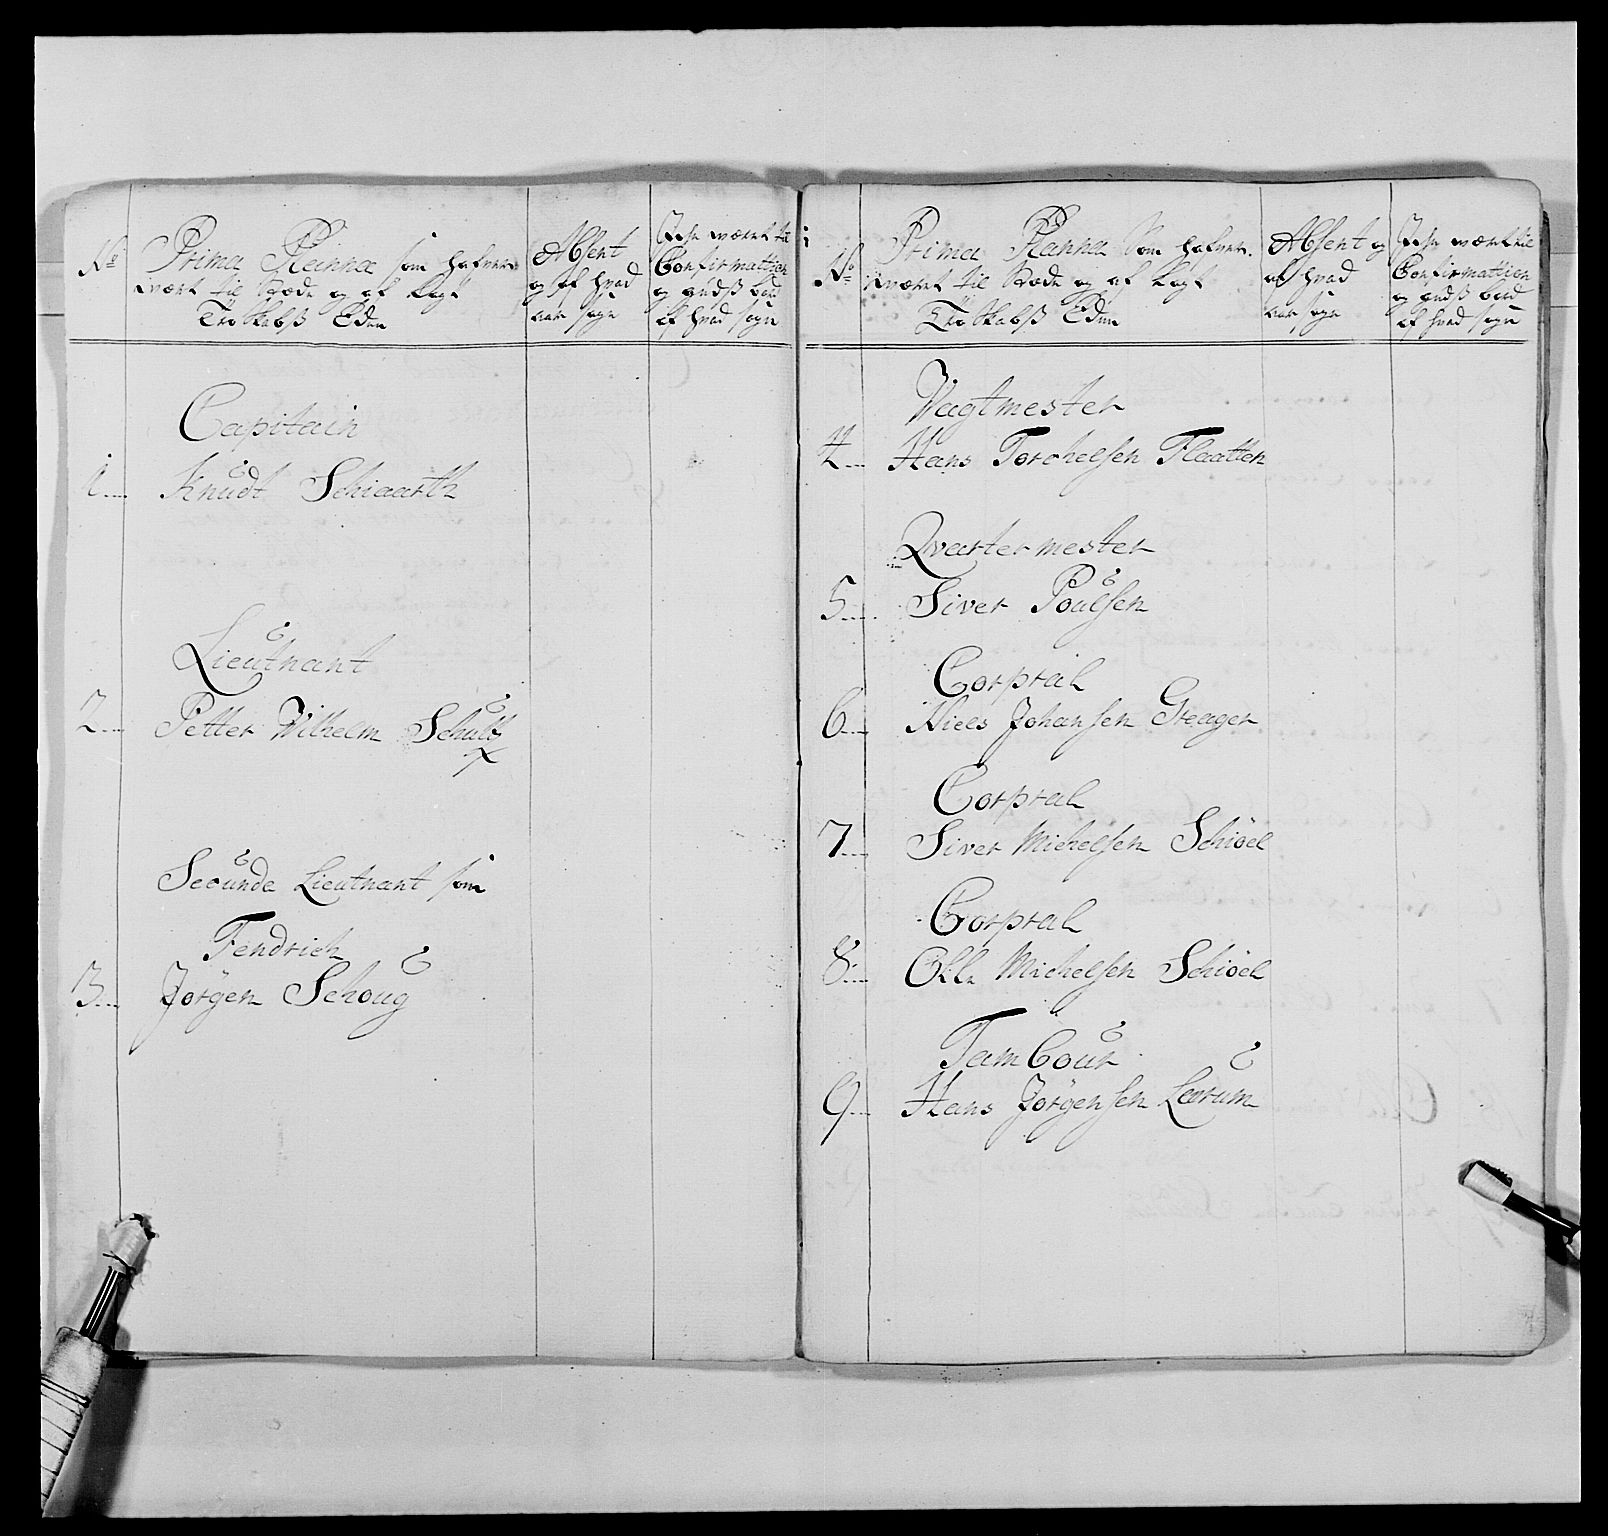 No
Prima Planna som hafver
været til Stæde og af Lagt
Troskabs Eden
Absent
og af hvad
aarsage
Icke været til
Confirmattion
og guds bord
af hvad sage
Capitain
1 Knudt Schiaarth
Lieutnant
2 Petter Wilhelm Schultz
Secunde Lieutnant som
Fendrich
3 Jørgen Schoug
No
Prima Planna Som hafver
været til Stæde og af Lagt
Troskabs Eden
Absent og
af hvad
aarsage
Icke været til
Confirmattion
og guds bord
af hvad sage
Vagtmester
4 Hans Torchelsen Flaatten
Qvartermester
5 Siver Poulsen
Corpral
6 Niels Johansen Greager
Corpral
7 Siver Michelsen Schiøel
Corpral
8 Olle Michelsen Schiøel
Tambour
9 Hans Jørgensen Lærum